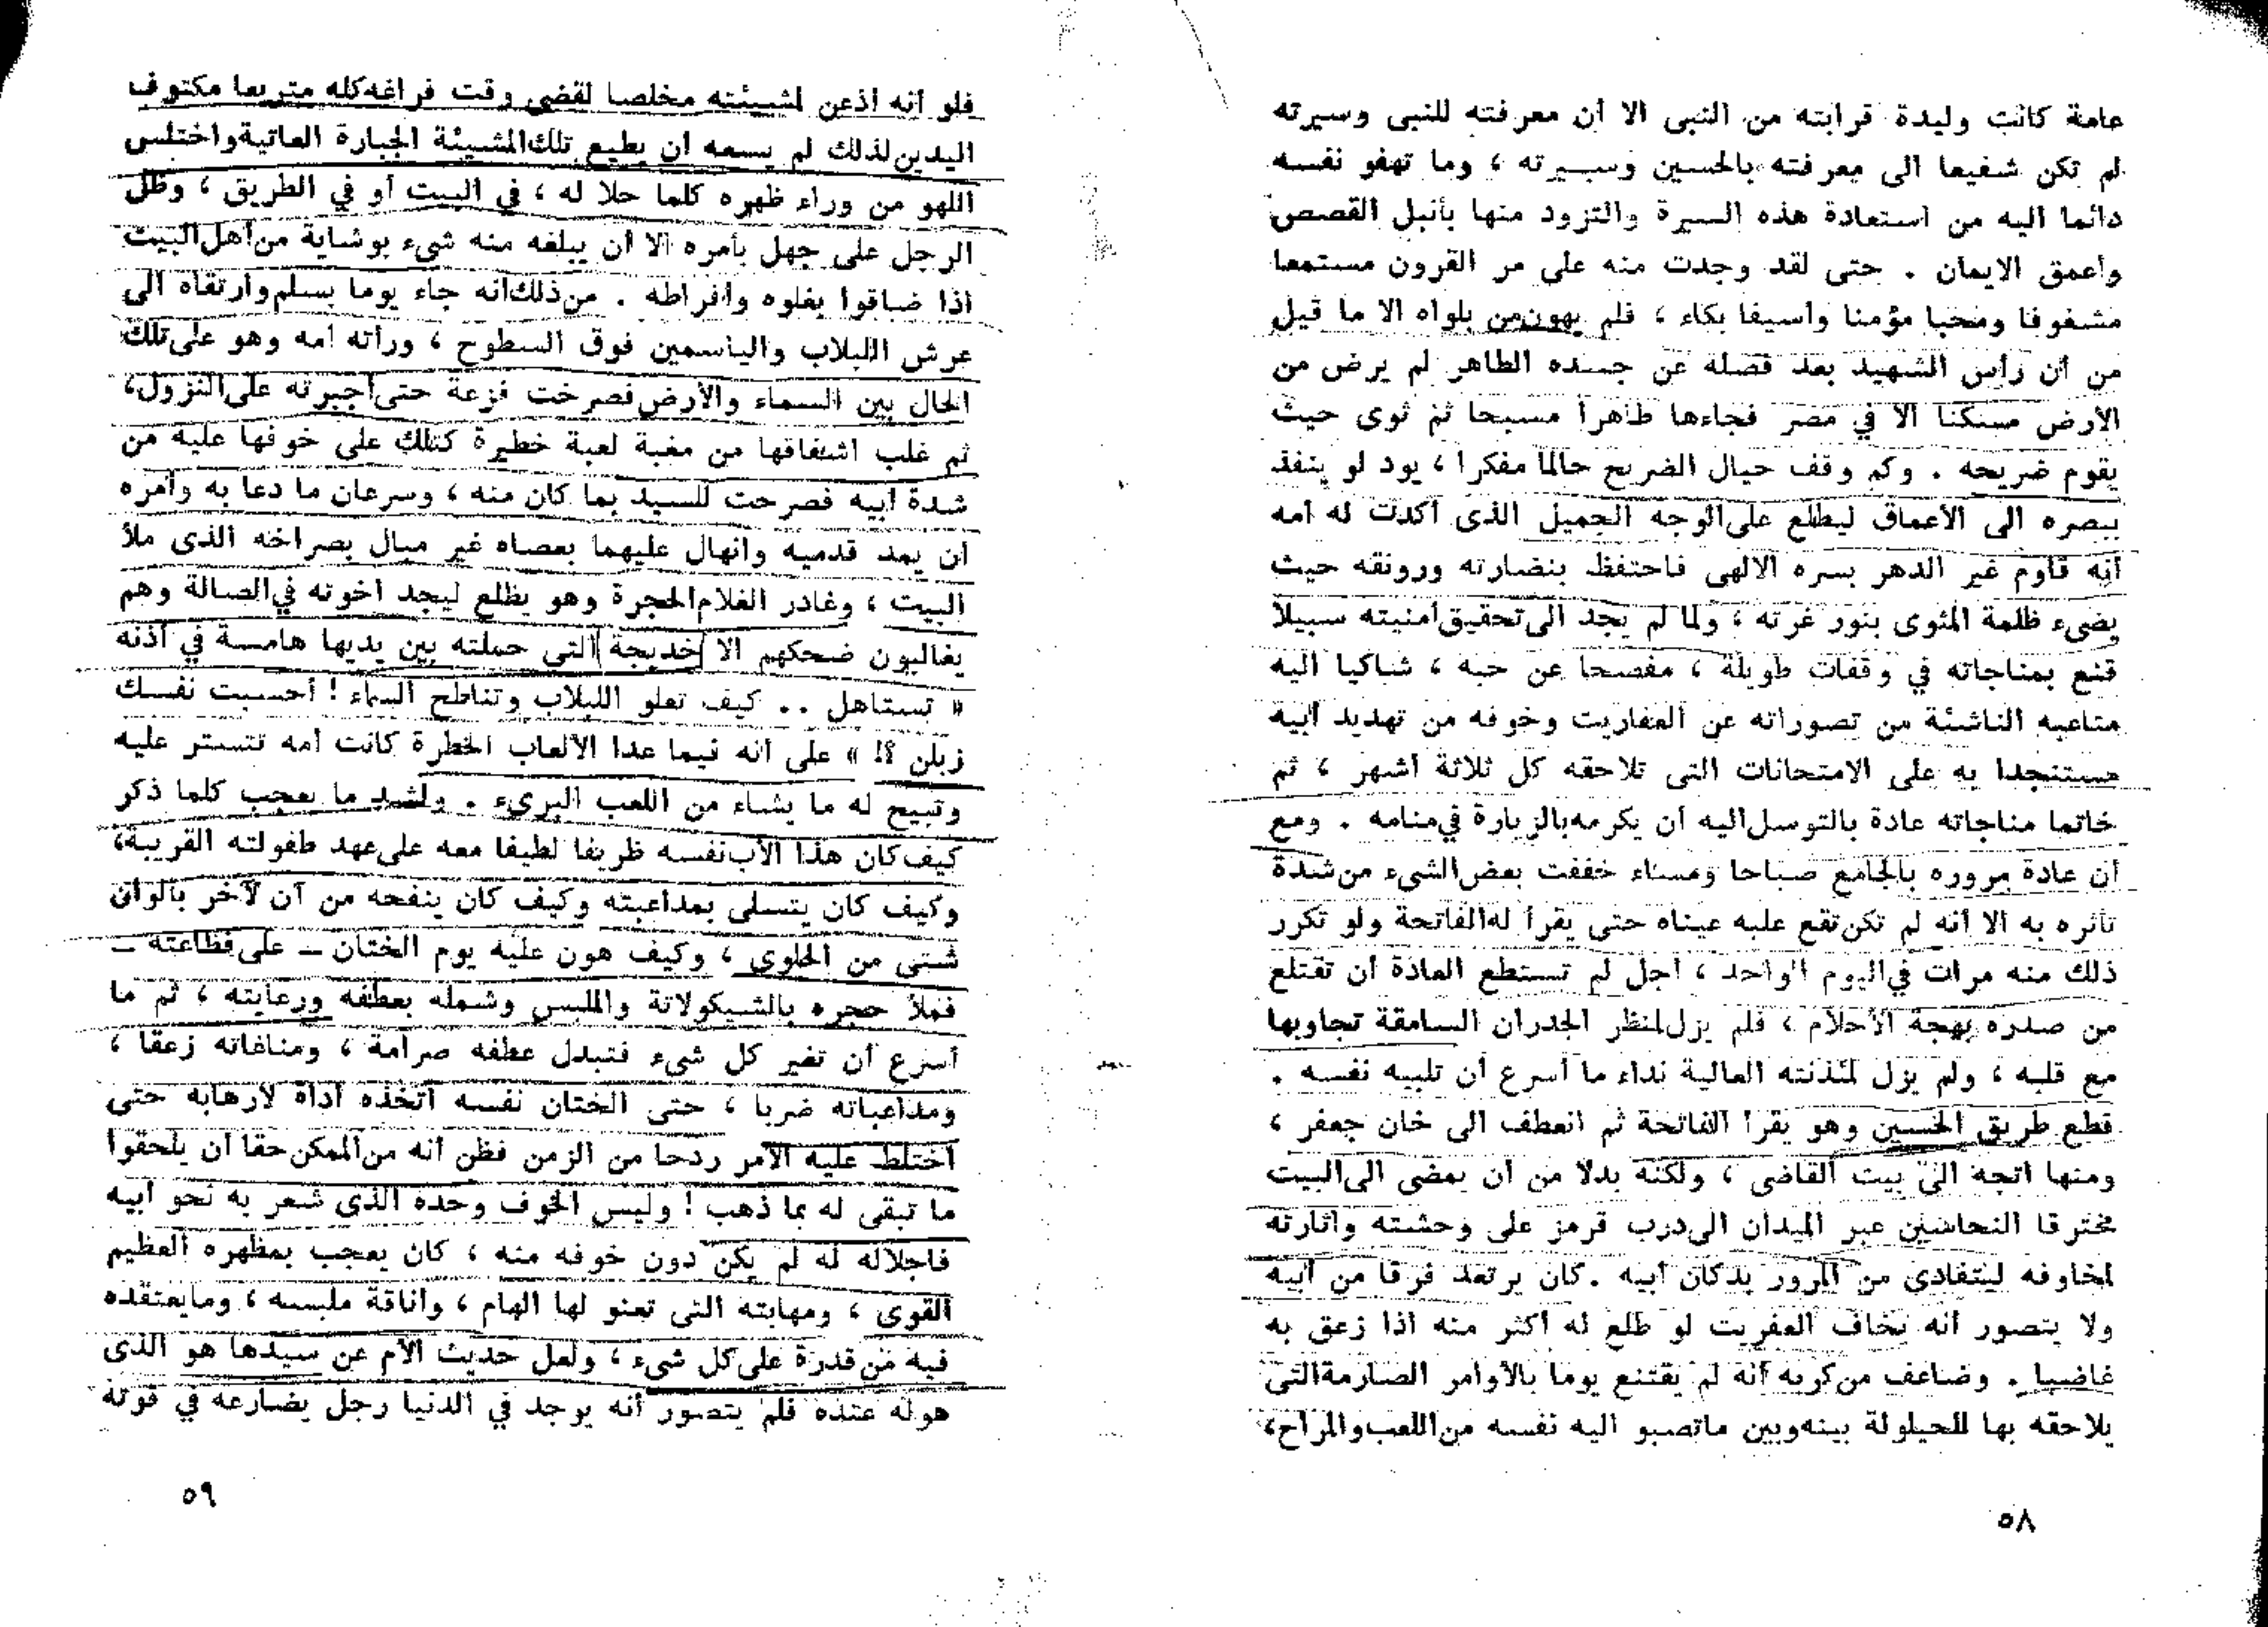 عامة كانت وليدة قرابته من النبى الا أن معرفته للنبى وسيرته
لم تكن شفيعا الى معرفته بالحسين وسيرته ، وما تهفو نفسه
دائما اليه من استعادة هذه السيرة والتزود منها بأنبل القصص
وأعمق الايمان . حتى لقد وجدت منه على مر القرون مستمعا
مشغوفا ومحبا مؤمنا وأسيفا بكاء ، فلم يهون من بلواه الا ما قيل
من أن رأس الشهيد بعد فصله عن جسده الطاهر لم يرض من
الأرض مسكنا الا في مصر فجاءها طاهرا مسبحا ثم ثوى حيث
يقوم ضريحه . وكم وقف حيال الضريح حالما مفكرا ، يود لو ينفذ
ببصره الى الأعماق ليطلع على الوجه الجميل الذى أكدت له أمه
أنه قاوم غير الدهر بسره الالهى فاحتفظ بنضارته ورونقه حيث
يضىء ظلمة المثوى بنور غرته ، ولما لم يجد الى تحقيق أمنيته سبيلا
قنع بمناجاته في وقفات طويلة ، مفصحا عن حبه ، شاكيا اليه
متاعبه الناشئة من تصوراته عن العفاريت وخوفه من تهديد أبيه
مستنجدا به على الامتحانات التى تلاحقه كل ثلاثة أشهر ، ثم
خاتما مناجاته عادة بالتوسل اليه أن يكرمه بالزيارة في منامه . ومع
أن عادة مروره بالجامع صباحا ومساء خففت بعض الشىء من شدة
تأثره به الا أنه لم تكن تقع عليه عيناه حتى يقرأ له الفاتحة ولو تكرر
ذلك منه مرات في اليوم الواحد ، أجل لم تستطع العادة أن تقتلع
من صدره بهجة الأحلام ، فلم يزل لمنظر الجدران السامقة تجاوبها
مع قلبه ، ولم يزل لمئذنته العالية نداء ما أسرع أن تلبيه نفسه .
قطع طريق الحسين وهو يقرأ الفاتحة ثم انعطف الى خان جعفر ،
ومنها اتجه الى بيت القاضى ، ولكنه بدلا من أن يمضى الى البيت
مخترقا النحاسين عبر الميدان الى درب قرمز على وحشته واثارته
لمخاوفه ليتفادى من المرور بدكان أبيه . كان يرتعد فرقا من أبيه
ولا يتصور أنه يخاف العفريت لو طلع له أكثر منه اذا زعق به
غاضبا . وضاعف من كربه أنه لم يقتنع يوما بالأوامر الصارمة التى
يلاحقه بها للحيلولة بينه وبين ما تصبو اليه نفسه من اللعب والمراح،
٥٨
فلو أنه أذعن لمشيئته مخلصا لقضى وقت فراغه كله متربعا مكتوف
اليدين لذلك لم يسعه أن يطيع تلك المشيئة الجبارة العاتية واختلس
اللهو من وراء ظهره كلما حلا له ، في البيت أو في الطريق ، وظل
الرجل على جهل بأمره الا أن يبلغه منه شىء بوشاية من أهل البيت
اذا ضاقوا بغلوه وافراطه . من ذلك أنه جاء يوما بسلم وارتقاه الى
عرش اللبلاب والياسمين فوق السطوح ، ورأته أمه وهو على تلك
الحال بين السماء والأرض فصرخت فزعة حتى أجبرته على النزول،
ثم غلب اشفاقها من مغبة لعبة خطيرة كتلك على خوفها عليه من
شدة أبيه فصرحت للسيد بما كان منه ، وسرعان ما دعا به وأمره
أن يمد قدميه وانهال عليهما بعصاه غير مبال بصراخه الذى ملأ
البيت ، وغادر الغلام الحجرة وهو يظلع ليجد أخوته في الصالة وهم
يغالبون ضحكهم الا خديجة التى حملته بين يديها هامسة في أذنه
« تستاهل .. كيف تعلو اللبلاب وتناطح السماء ! أحسبت نفسك
زبلن ؟! » على أنه فيما عدا الألعاب الخطرة كانت أمه تتستر عليه
وتبيح له ما يشاء من اللعب البرىء . ولشد ما يعجب كلما ذكر
كيف كان هذا الأب نفسه ظريفا لطيفا معه على عهد طفولته القريبة،
وكيف كان يتسلى بمداعبته وكيف كان ينفحه من آن لآخر بألوان
شتى من الحلوى ، وكيف هون عليه يوم الختان – على فظاعته –
فملأ حجره بالشيكولاتة والملبس وشمله بعطفه ورعايته ، ثم ما
أسرع أن تغير كل شىء فتبدل عطفه صرامة ، ومناغاته زعقا ،
ومداعباته ضربا ، حتى الختان نفسه اتخذه أداة لارهابه حتى
اختلط عليه الأمر ردحا من الزمن فظن أنه من الممكن حقا أن يلحقوا
ما تبقى له بما ذهب ! وليس الخوف وحده الذى شعر به نحو أبيه
فاجلاله له لم يكن دون خوفه منه ، كان يعجب بمظهره العظيم
القوى ، ومهابته التى تعنو لها الهام ، وأناقة ملبسه ، وما يعتقده
فيه من قدرة على كل شىء ، ولعل حديث الأم عن سيدها هو الذى
هوله عنده فلم يتصور أنه يوجد في الدنيا رجل يضارعه في قوته
٥٩